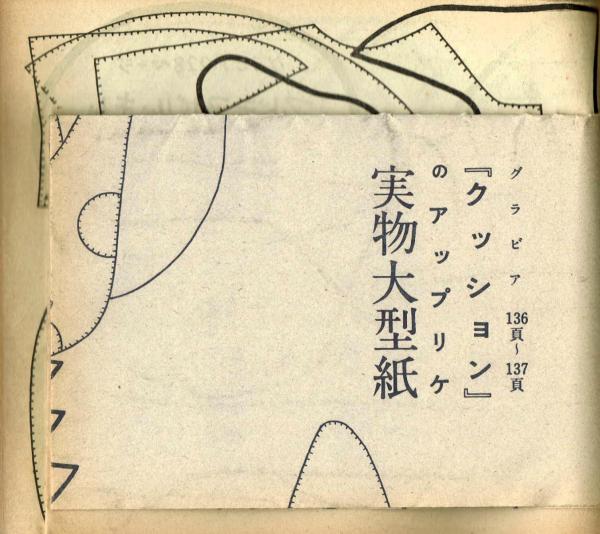 グラビア 136頁〜137頁
『クッション』
のアップリケ
実物大型紙